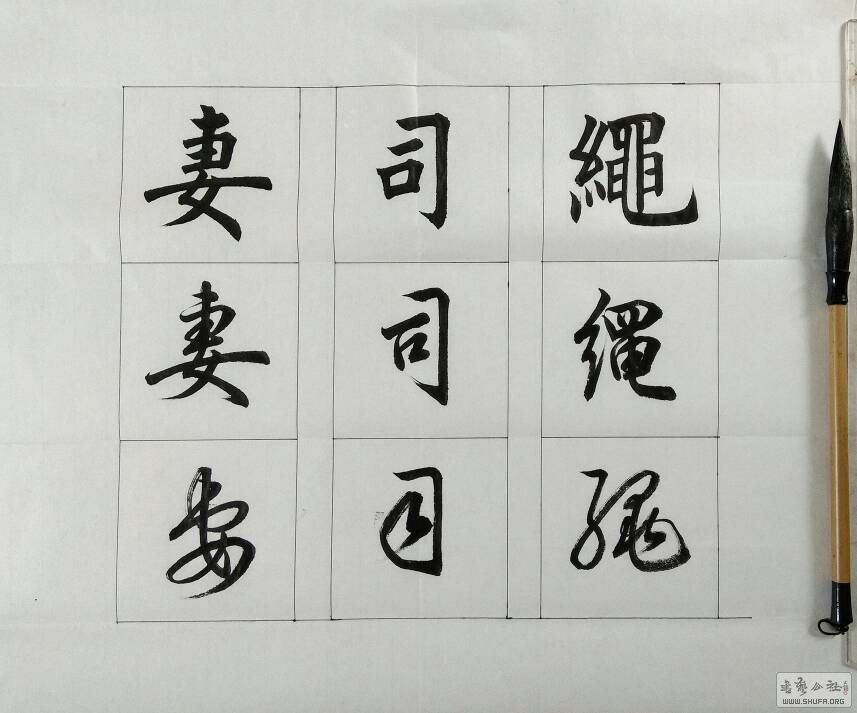 繩 司 妻
繩 司 妻
繩 司 妻
書藝公社
WWW.SHUFA.ORG